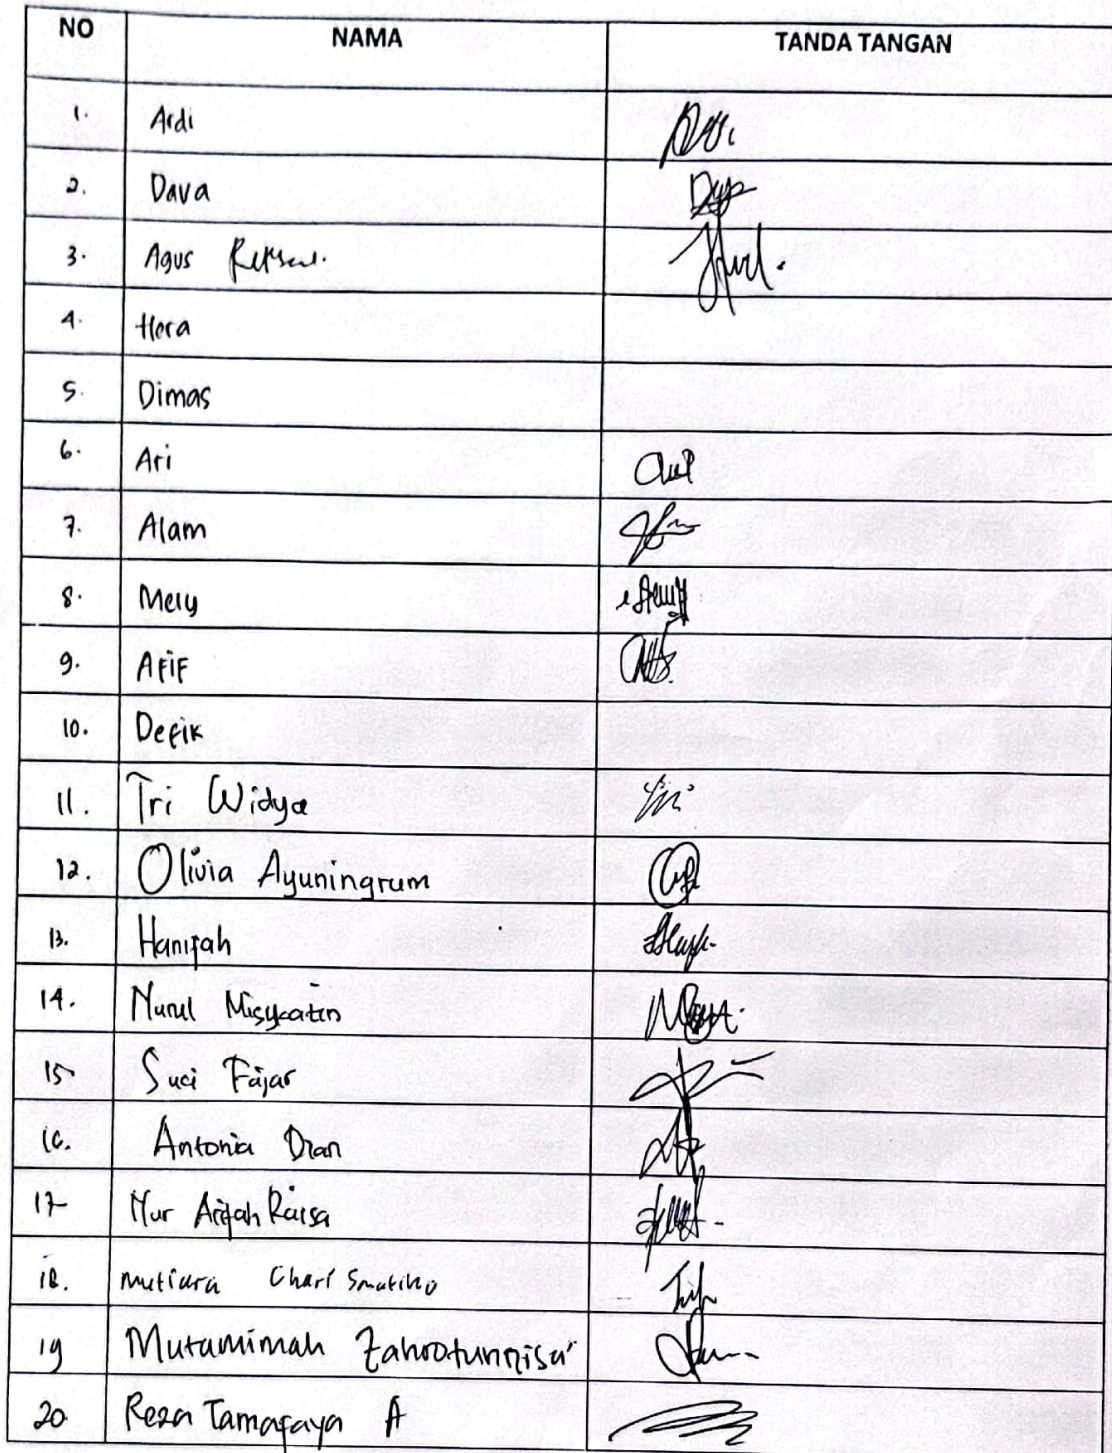 NO NAMA TANDA TANGAN
1. Ardi
2. Dava
3. Agus
4. Hera
5. Dimas
6. Ari
7. Alam
8. Mely
9. Afif
10. Defik
11. Tri Widya
12. Olivia Ayuningrum
13. Hanifah
14. Nurul Misykatin
15 Suci Fajar
16. Antonia Dian
17 Nur Aifah Raisa
18. Mutiara
19 Mutamimah Zahrotunnisa'
20. Reza Tamafaya A